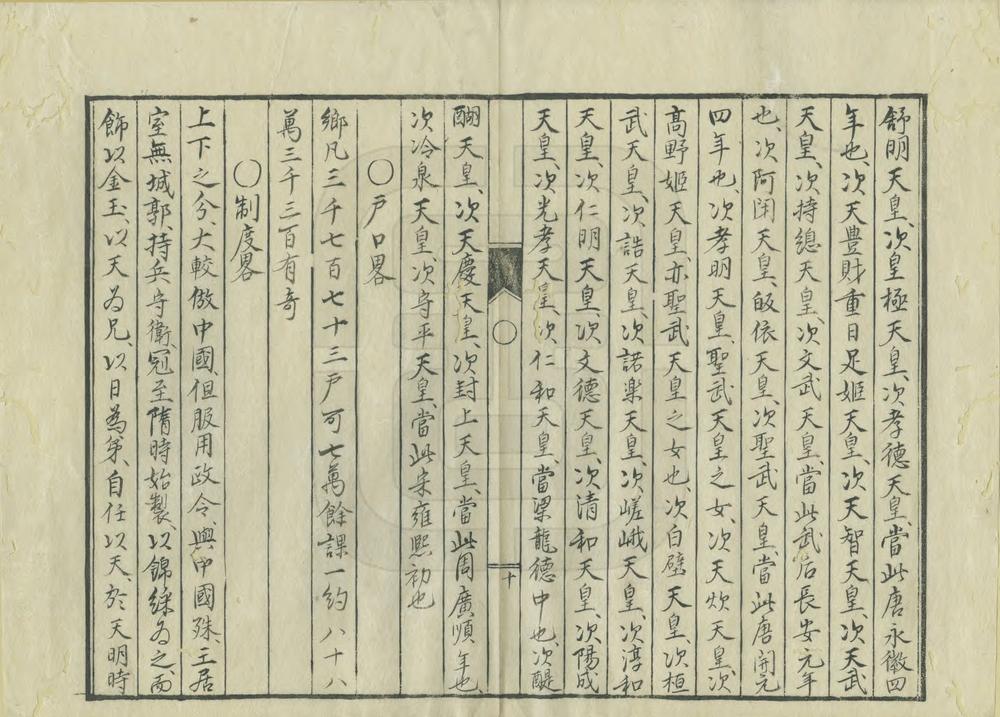 舒明天皇、次皇極天皇、次孝德天皇、當此唐永徽四
年也、次天豊財重日足姬天皇、次天智天皇、次天武
天皇、次持總天皇、次文武天皇、當此武后長安元年
也、次阿闭天皇、皈依天皇、次聖武天皇、當此唐開元
四年也、次孝明天皇、聖武天皇之女、次天炊天皇、次
髙野姬天皇、亦聖武天皇之女也、次白壁天皇、次桓
武天皇、次諾天皇、次諾楽天皇、次嵯峨天皇、次淳和
天皇、次仁明天皇、次文德天皇、次清和天皇、次陽成
天皇、次光孝天皇、次仁和天皇、當梁龍德中也、次醍
十
醐天皇、次天慶天皇、次封上天皇、當此周廣順年也、
次冷泉天皇、次守平天皇、當此宋雍熙初也
〇戶口畧
鄉凡三千七百七十三戶可七萬餘課一約八十八
萬三千三百有奇
〇制度畧
上下之分、大較倣中國、但服用政令、與中國殊、王居
室無城郭、持兵守衛、冠至隋時始製、以錦綵為之、而
飾以金玉、以天為兄、以日為弟、自任以天、於天明時